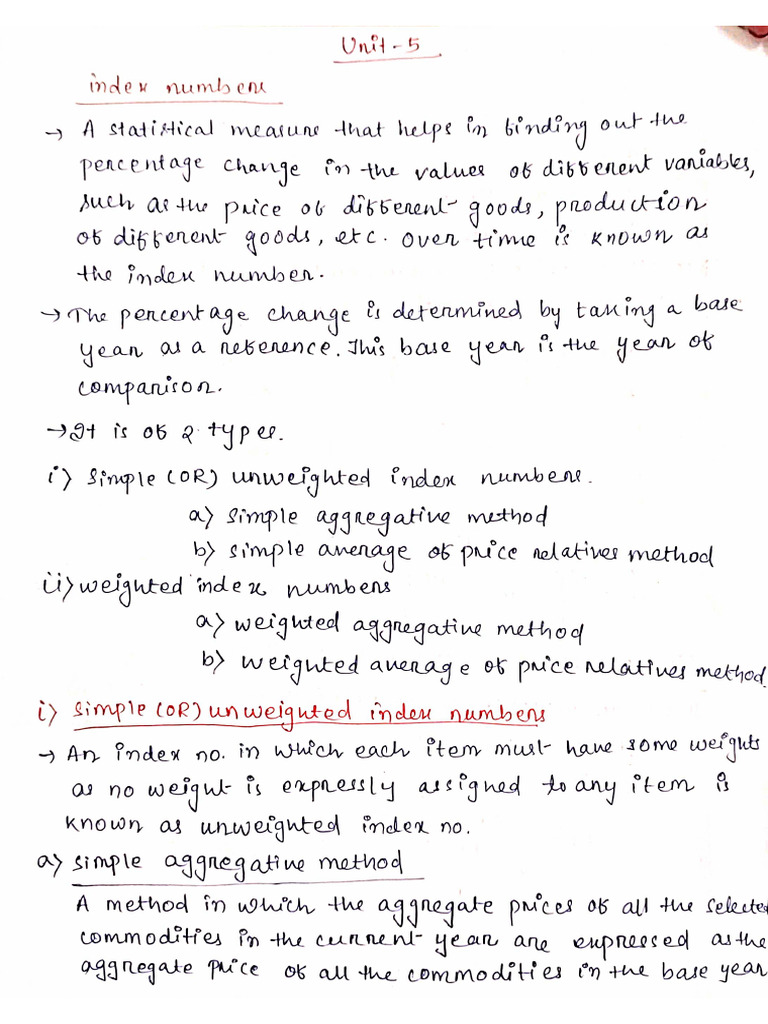 Unit-5
index numbers
→ A statistical measure that helps in finding out the
percentage change in the values of different variables,
such as the price of different goods, production
of different goods, etc. over time is known as
the index number.
→ The percentage change is determined by taking a base
year as a reference. This base year is the year of
comparison.
→ It is of 2 types.
i) Simple (OR) unweighted index numbers.
a) Simple aggregative method
b) simple average of price relatives method
ii) weighted index numbers
a) weighted aggregative method
b) weighted average of price relatives method
i) Simple (OR) unweighted index numbers
→ An index no. in which each item must have some weights
as no weight is expressly assigned to any item is
known as unweighted index no.
a) simple aggregative method
A method in which the aggregate prices of all the selected
commodities in the current year are expressed as the
aggregate price of all the commodities in the base year